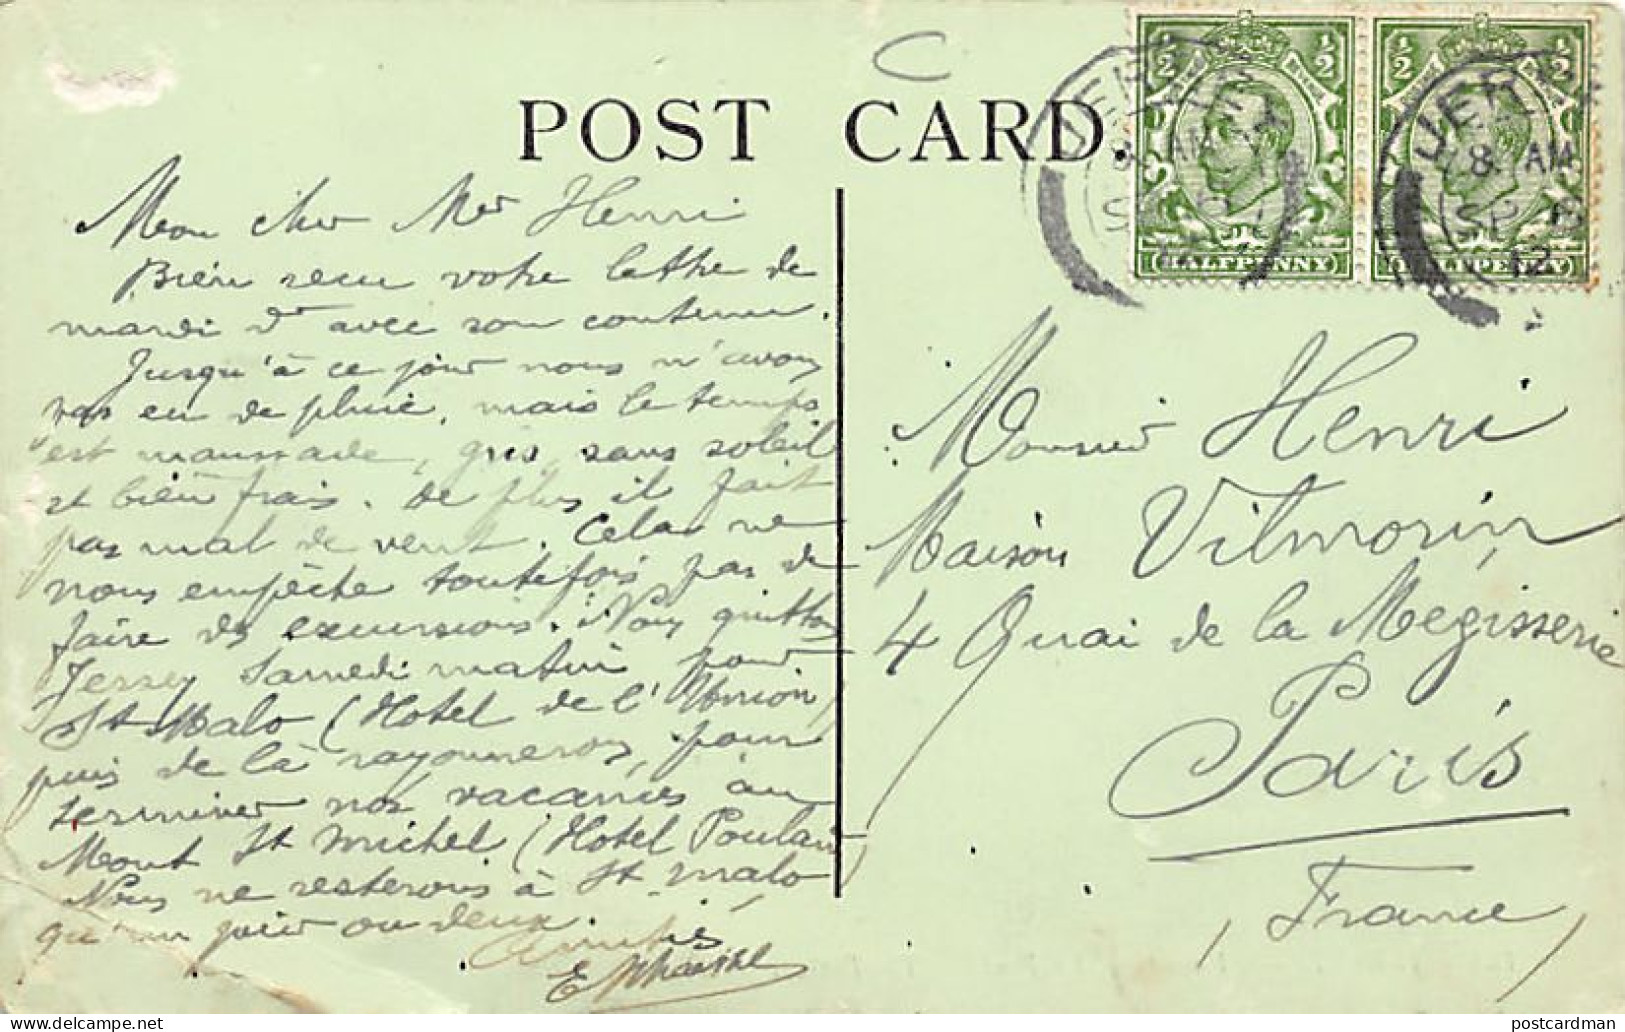 POST CARD.
C
½ ½ ½ ½
HALFPENNY HALFPENNY
JERSEY JERSEY
8 AM
SP 6
12
Mon cher Mr Henri
Bien reçu votre lettre de
mardi dr avec son contenu.
Jusqu'à ce jour nous n'avons
pas eu de pluie, mais le temps
est maussade, gris sans soleil
et bien frais. De plus il fait
pas mal de vent. Cela ne
nous empêche toutefois pas de
faire des excursions. Nous quittons
Jersey Samedi matin pour
St Malo (Hotel de l'Union)
puis de là rayonnerons, pour
terminer nos vacances au
Mont St Michel (Hotel Poulard
Nous ne resterons à St Malo
qu'un jour ou deux.
Amitiés
Monsieur Henri
Maison Vilmorin
4 Quai de la Megisserie
Paris
(France)
delcampe.net
postcardman